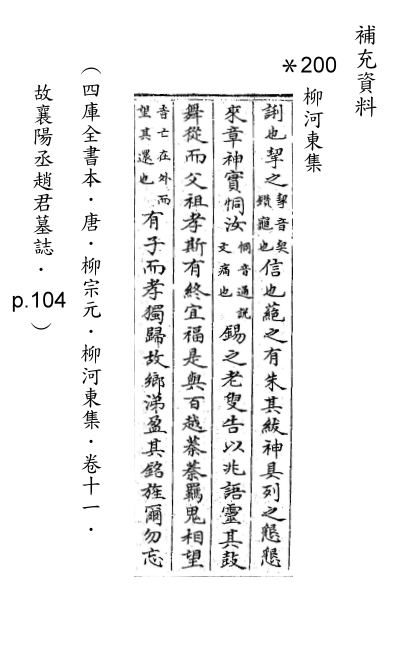 補充資料
*200
柳河東集
誗也挈之挈音契
鑽龜也信也蒀之有朱其紱神具列之懇懇
來章神實恫汝恫音通説
文痛也錫之老叟告以兆語靈其鼓
舞從而父祖孝斯有終宜福是與百越蓁蓁羈鬼相望
音亡在外而
望其還也有子而孝獨歸故鄉涕盈其銘旌爾勿忘
(四庫全書本·唐·柳宗元·柳河東集·卷十一·
故襄陽丞趙君墓誌·p.104)